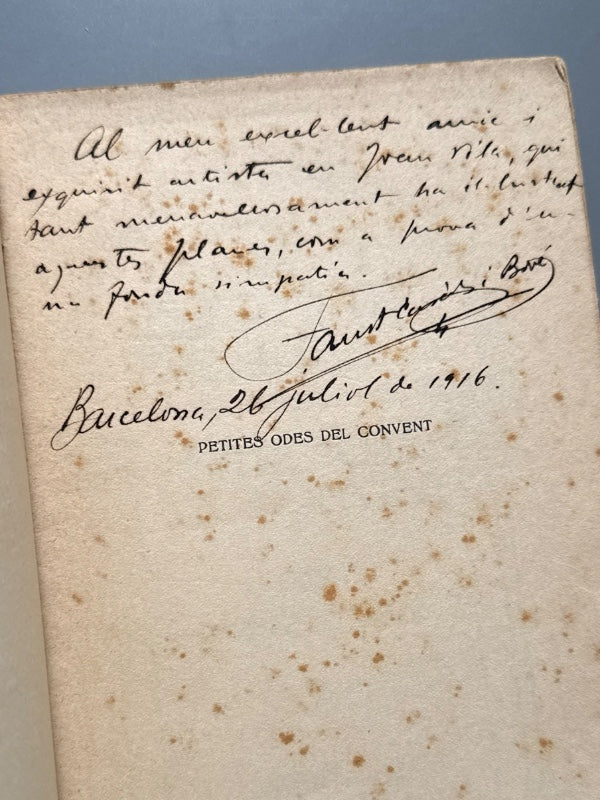 Al meu excel·lent amic i
exquisit artista en Joan Vila, qui
tant meravellosament ha il·lustrat
aquestes planes, com a prova d'u-
na fonda simpatia.
Faust Casals i Bové
Barcelona, 26 juliol de 1916.
PETITES ODES DEL CONVENT